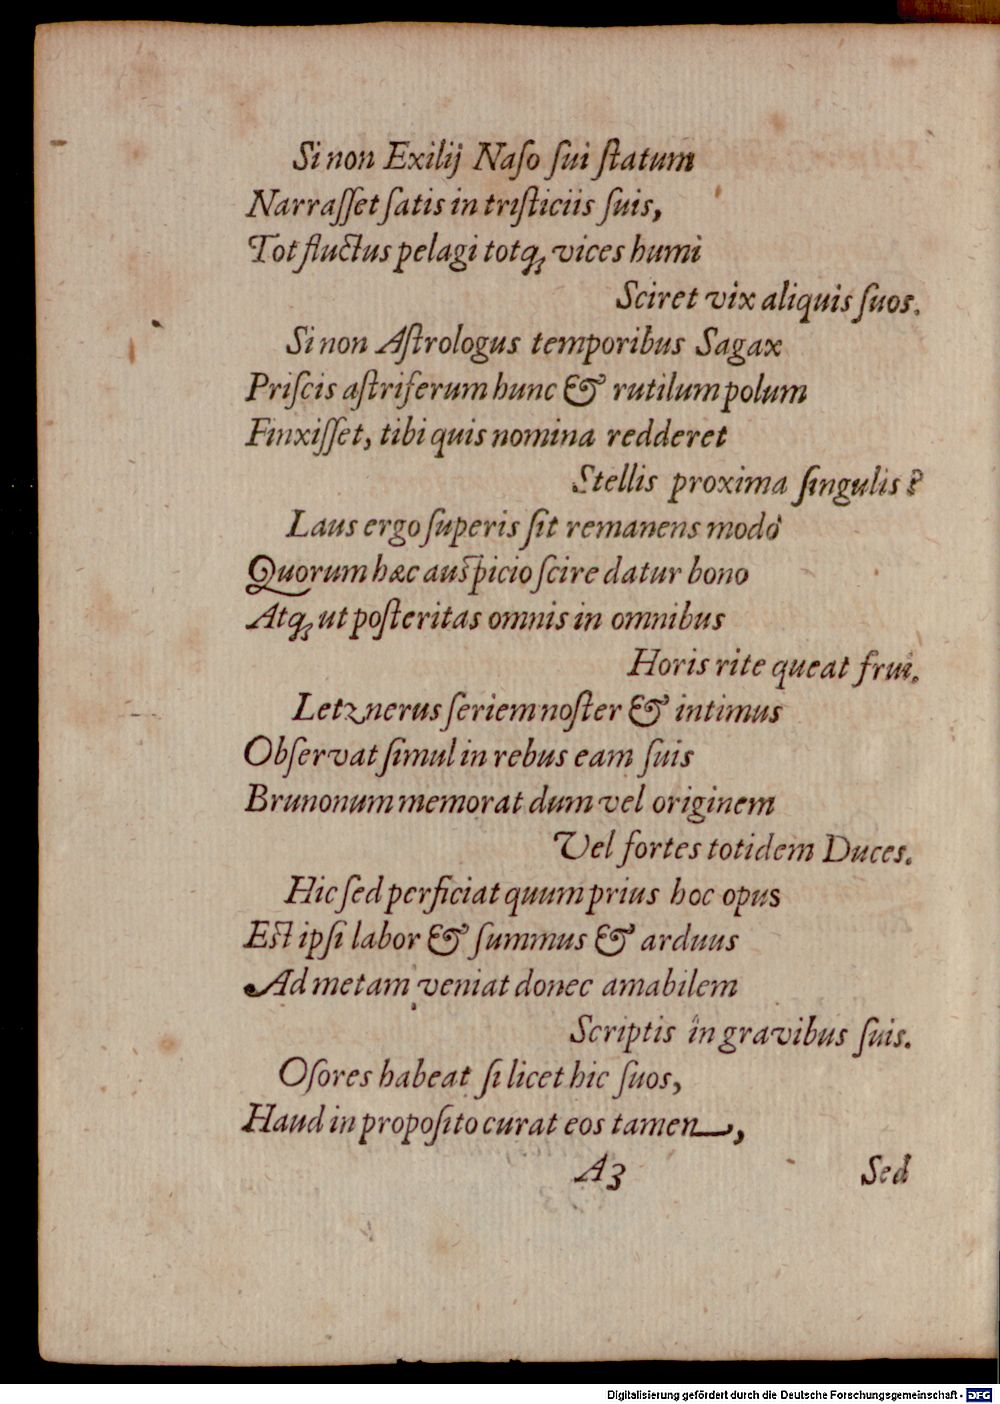 Si non Exilij Naſo ſui ſtatum
Narraſſet ſatis in triſticiis ſuis,
Tot fluctus pelagi totq́; vices humi
Sciret vix aliquis ſuos.
Si non Aſtrologus temporibus Sagax
Priſcis aſtriferum hunc & rutilum polum
Finxiſſet, tibi quis nomina redderet
Stellis proxima ſingulis?
Laus ergo ſuperis ſit remanens modò
Quorum hæc auſpicio ſcire datur bono
Atq; ut poſteritas omnis in omnibus
Horis rite queat frui.
Letznerus ſeriem noſter & intimus
Obſervat ſimul in rebus eam ſuis
Brunonum memorat dum vel originem
Vel fortes totidem Duces.
Hic ſed perficiat quum prius hoc opus
Eſt ipſi labor & ſummus & arduus
Ad metam veniat donec amabilem
Scriptis in gravibus ſuis.
Oſores habeat ſi licet hic ſuos,
Haud in propoſito curat eos tamen,
A3 Sed
Digitalisierung gefördert durch die Deutsche Forschungsgemeinschaft - DFG